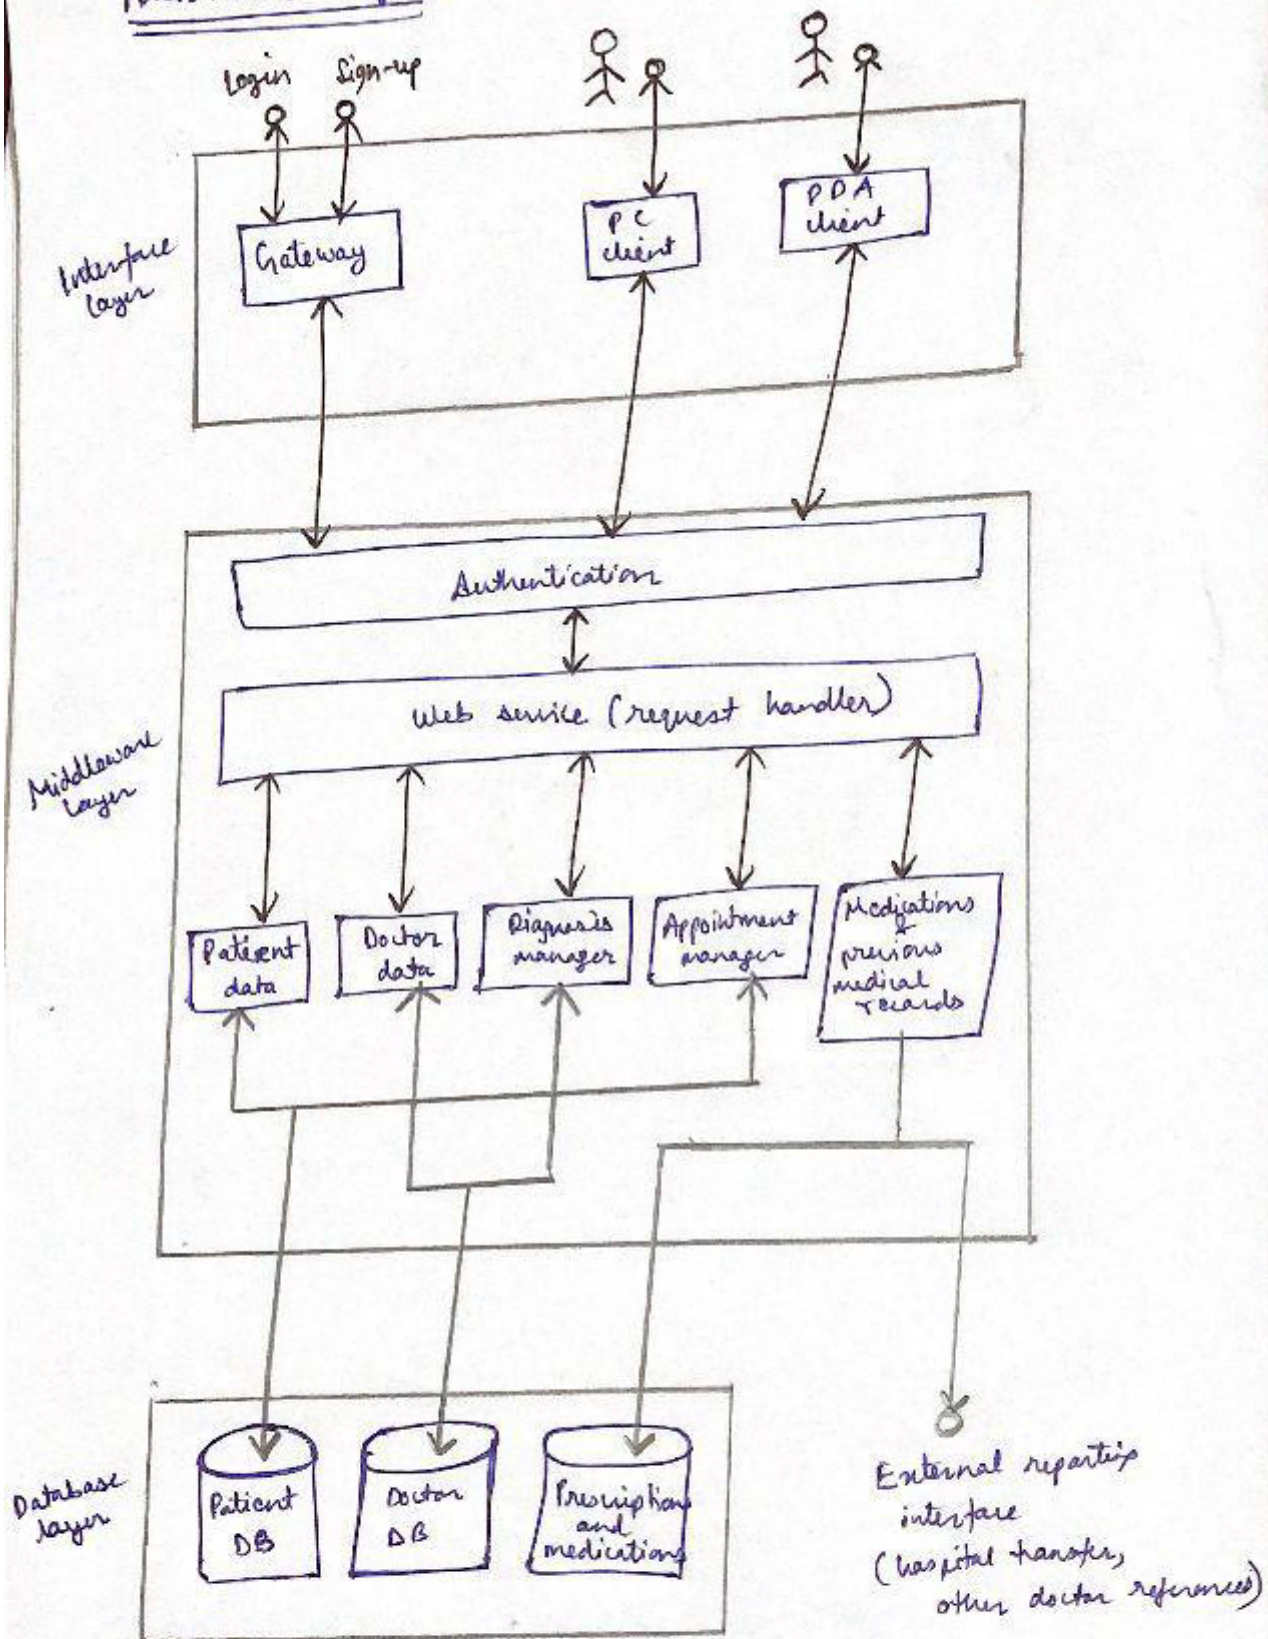 Login
Sign-up
PC
client
PDA
client
Gateway
Interface
layer
Authentication
Web service (request handler)
Middleware
layer
Patient
data
Doctor
data
Diagnosis
manager
Appointment
manager
Medications
&
previous
medical
records
Database
layer
Patient
DB
Doctor
DB
Prescriptions
and
medications
External reporting
interface
(hospital transfer,
other doctor references)